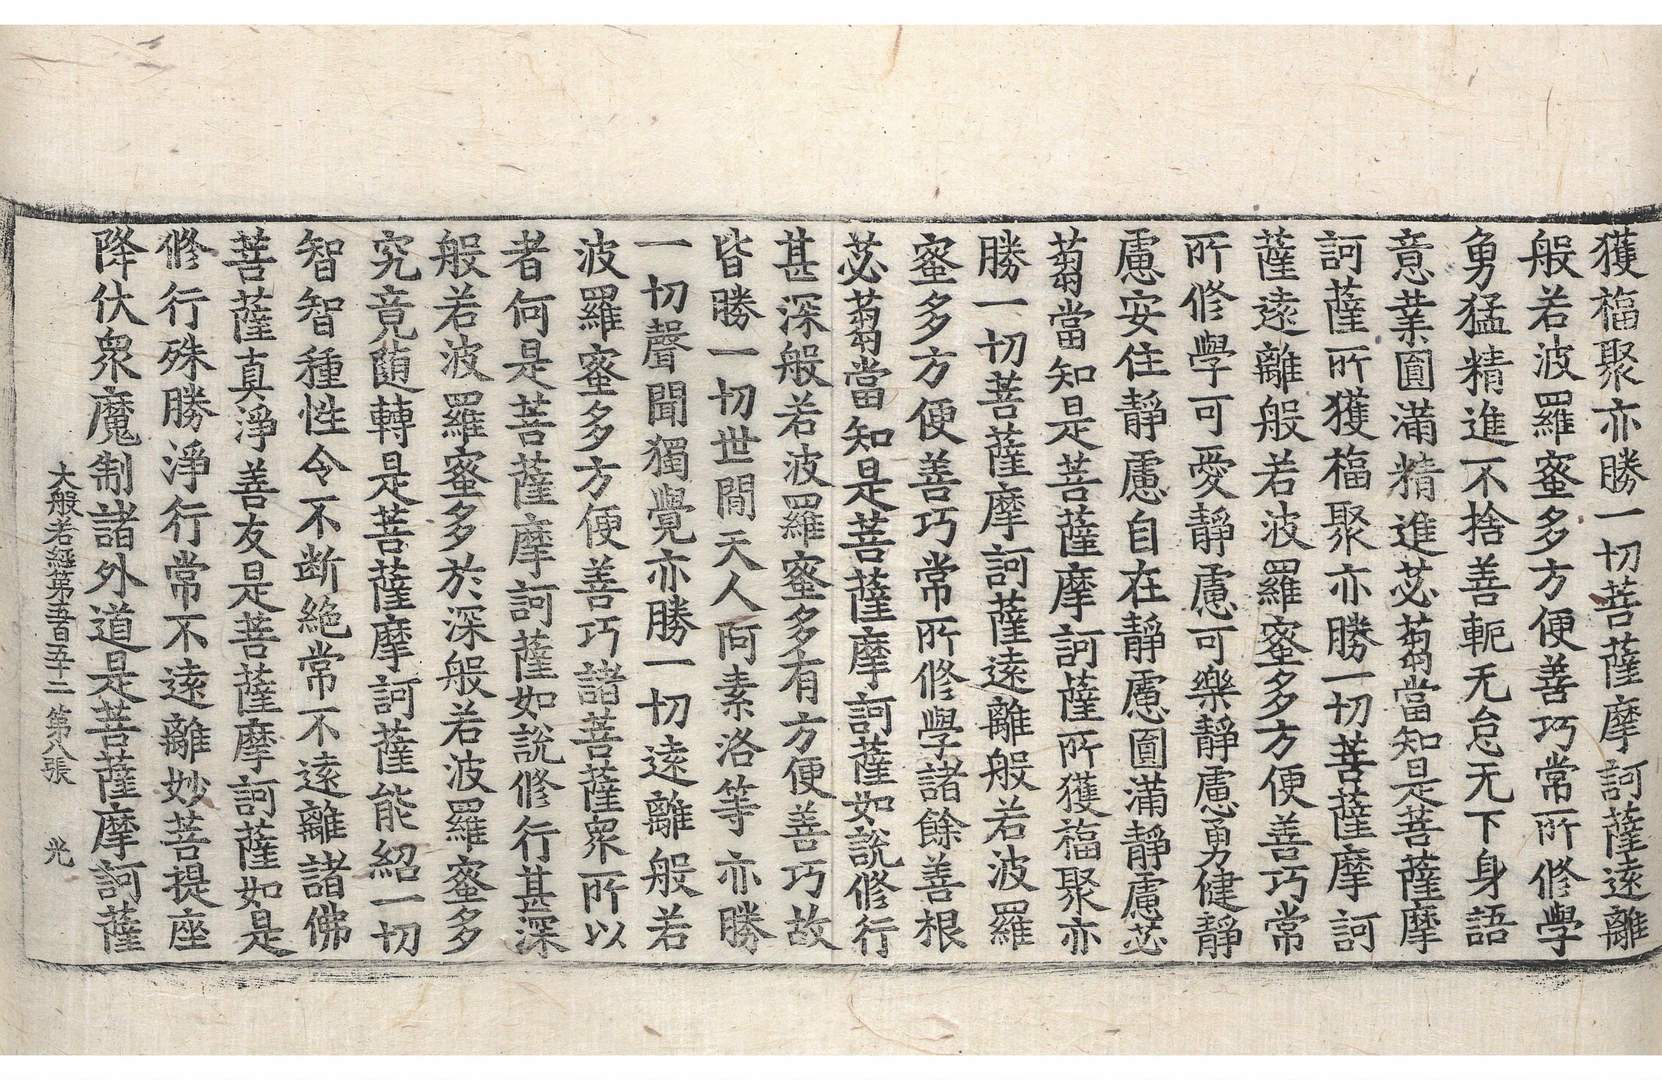 獲福聚亦勝一切菩薩摩訶薩遠離
般若波羅蜜多方便善巧常所修學
勇猛精進不捨善軛无怠无下身語
意業圓滿精進苾蒭當知是菩薩摩
訶薩所獲福聚亦勝一切菩薩摩訶
薩遠離般若波羅蜜多方便善巧常
所修學可愛靜慮可樂靜慮勇健靜
慮安住靜慮自在靜慮圓滿靜慮苾
蒭當知是菩薩摩訶薩所獲福聚亦
勝一切菩薩摩訶薩遠離般若波羅
蜜多方便善巧常所修學諸餘善根
苾蒭當知是菩薩摩訶薩如說修行
甚深般若波羅蜜多有方便善巧故
皆勝一切世間天人阿素洛等亦勝
一切聲聞獨覺亦勝一切遠離般若
波羅蜜多方便善巧諸菩薩眾所以
者何是菩薩摩訶薩如說修行甚深
般若波羅蜜多於深般若波羅蜜多
究竟隨轉是菩薩摩訶薩能紹一切
智智種性令不断絶常不遠離諸佛
菩薩真淨善友是菩薩摩訶薩如是
修行殊勝淨行常不遠離妙菩提座
降伏眾魔制諸外道是菩薩摩訶薩
大般若經第五百五十二 第八張 光